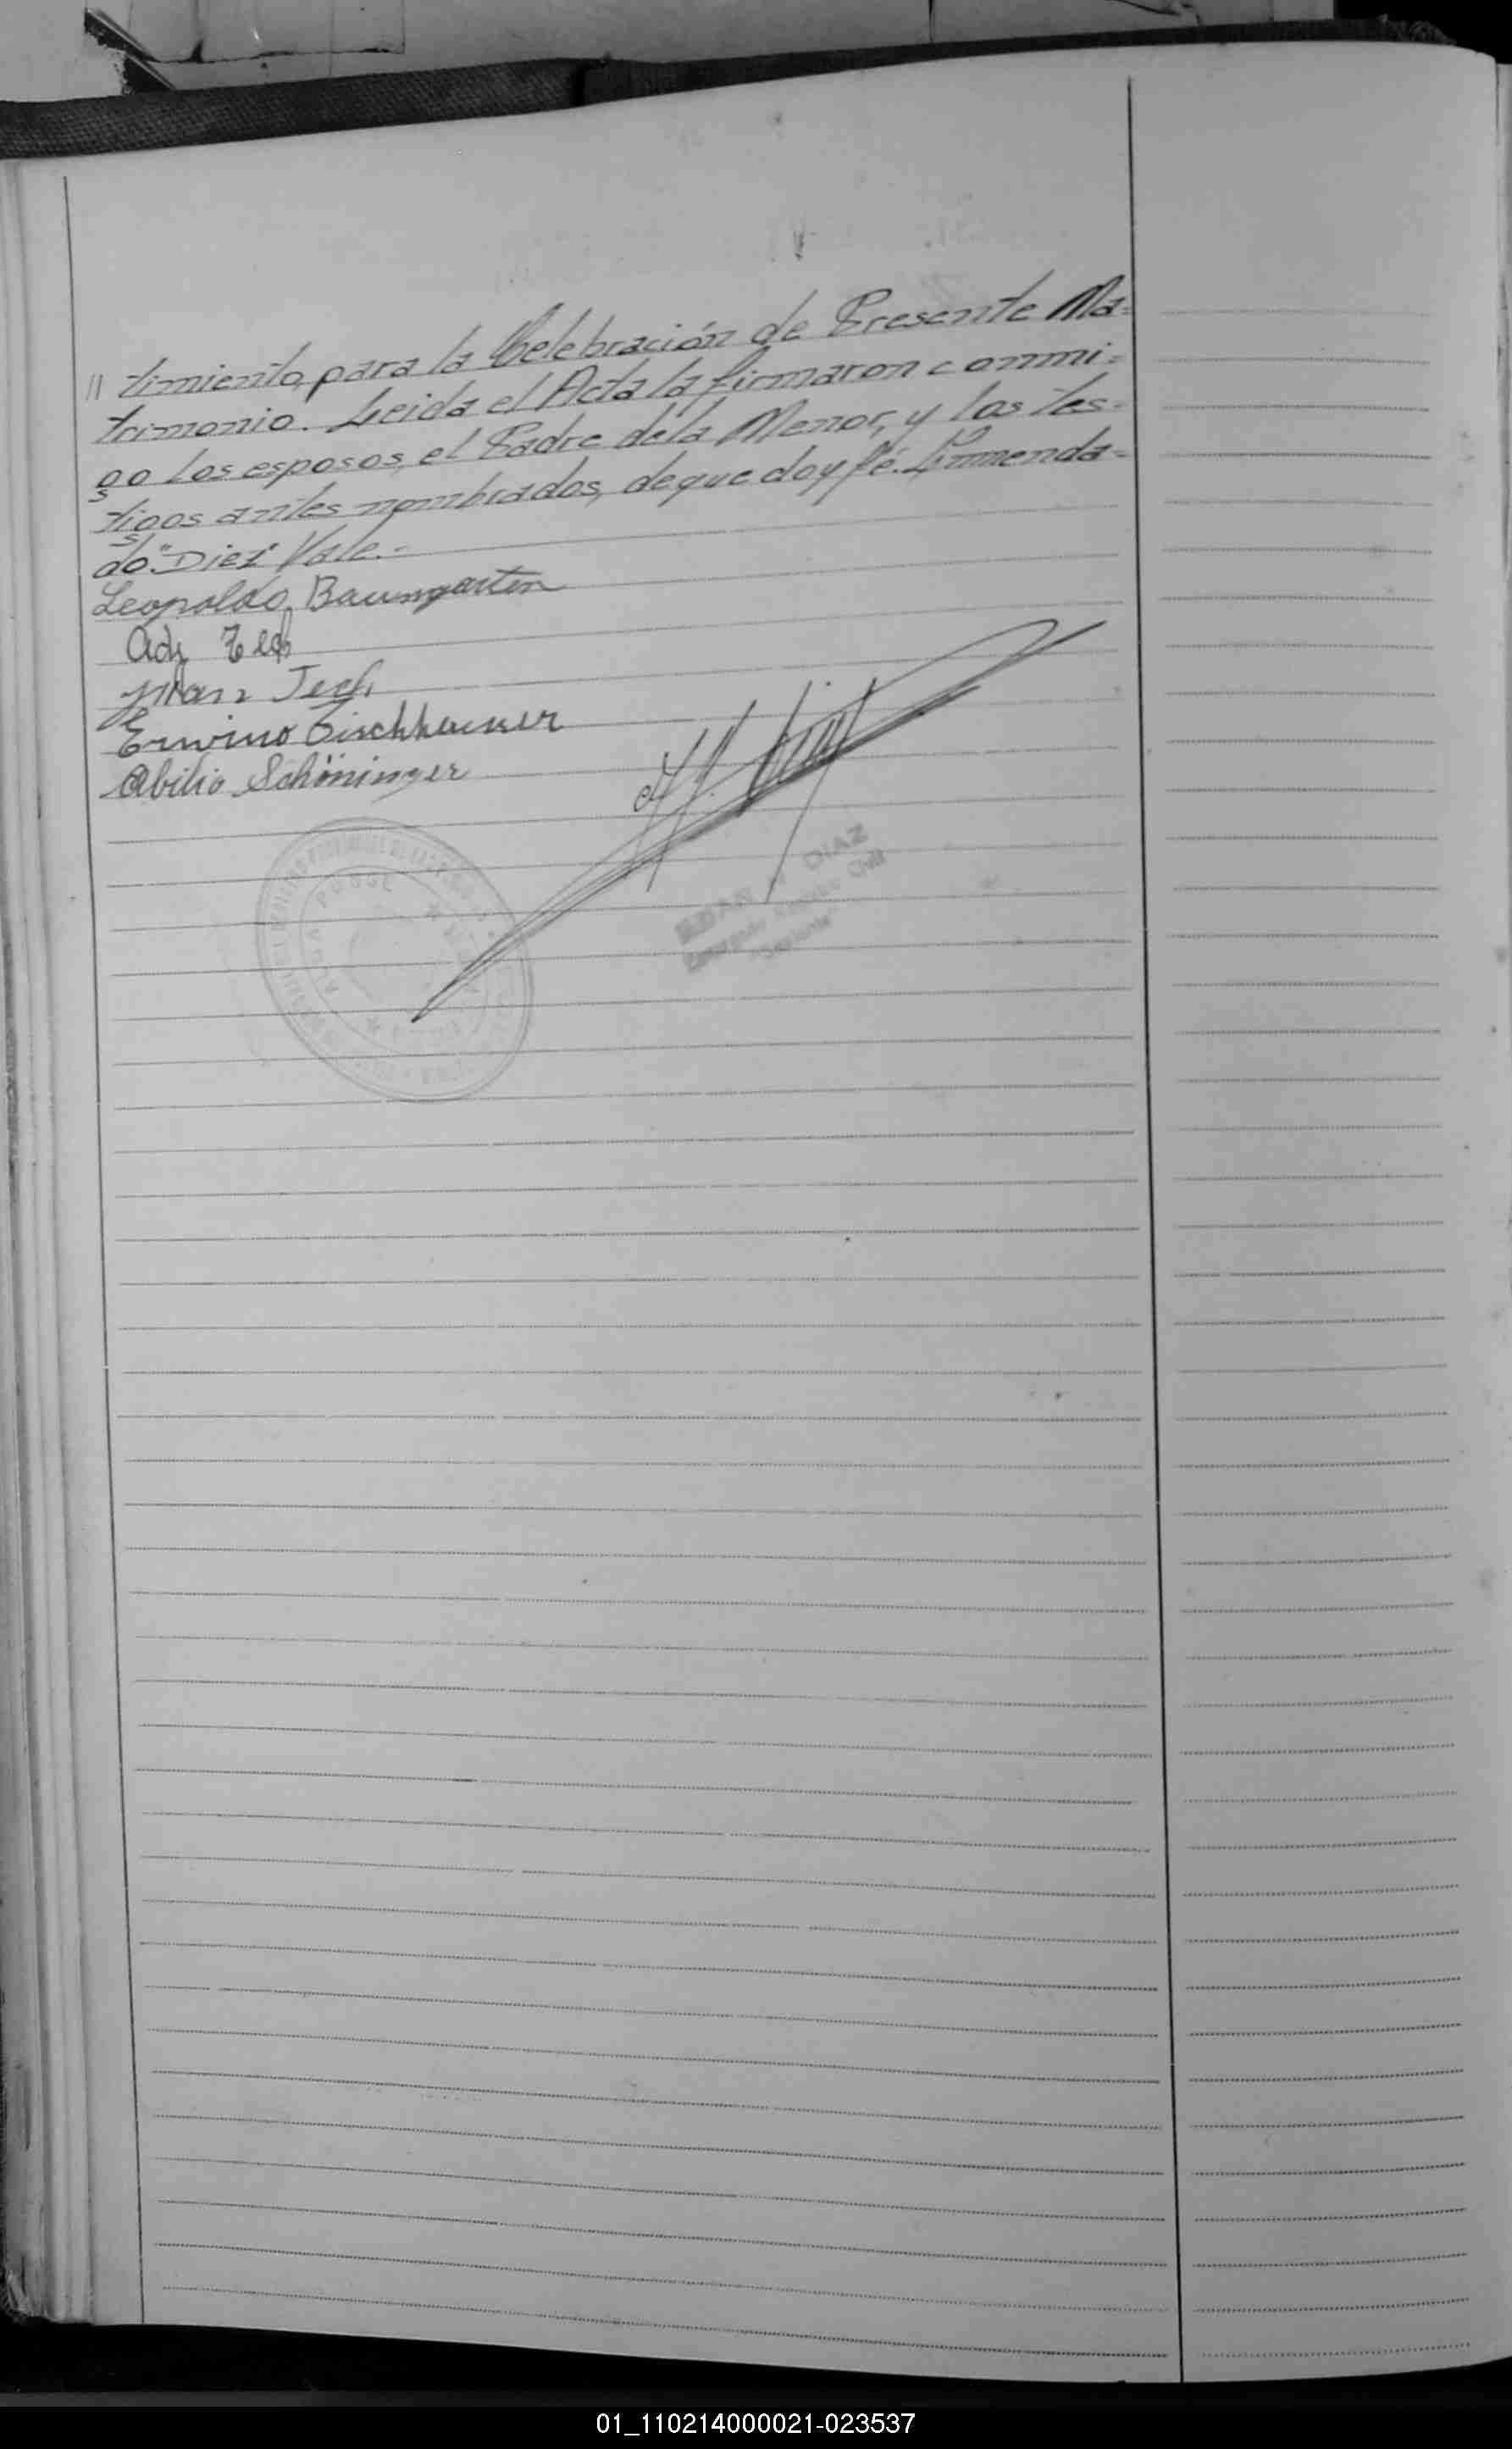 // timiento, para la Celebración de Presente Ma=
trimonio. Leida el Acta la firmaron conmi=
go los esposos, el Padre de la Menor, y los Tes=
tigos antes nombrados, de que doy fé. Enmenda=
do "Diez" Vale.-
Leopoldo Baumgarten
Juan Tech
Erwino Fischhauser
Abilio Schöninger
DIAZ
Registro Civil
01_110214000021-023537